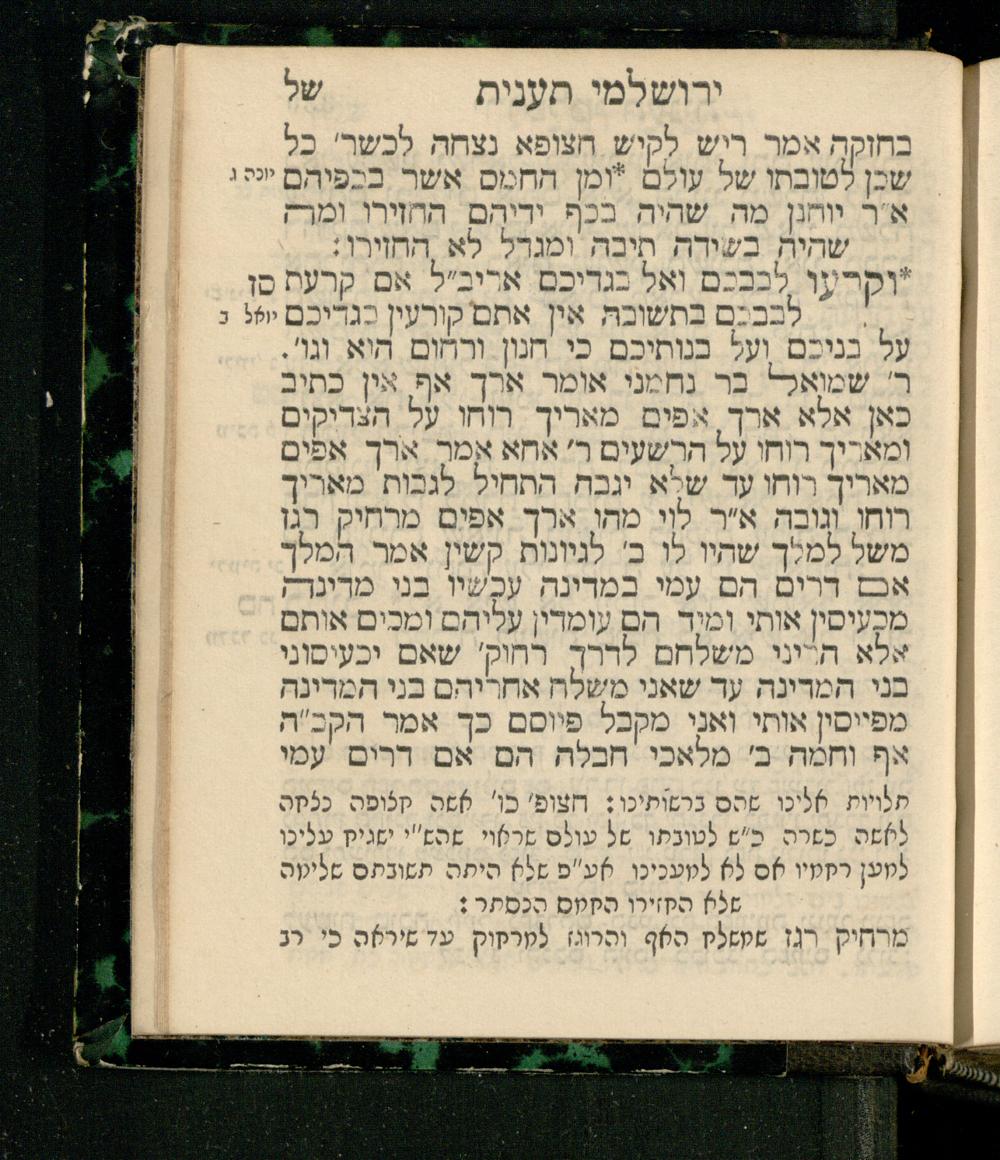 ירושלמי תענית של
בחזקה אמר ריש לקיש חצופא נצחה לכשר׳ כל
שכן לטובתו של עולם *ומן החמם אשר בכפיהם יונה ג
א״ר יוחנן מה שהיה בכף ידיהם החזירו ומה
שהיה בשידה תיבה ומגדל לא החזירו :
*וקרעו לבבכם ואל בגדיכם אריב״ל אם קרעת סז
לבבכם בתשובה אין אתם קורעין בגדיכם יואל ב
על בניכם ועל בנותיכם כי חנון ורחום הוא וגו׳.
ר׳ שמואל בר נחמני אומר ארך אף אין כתיב
כאן אלא ארך אפים מאריך רוחו על הצדיקים
ומאריך רוחו על הרשעים ר׳ אחא אמר ארך אפים
מאריך רוחו עד שלא יגבה התחיל לגבות מאריך
רוחו וגובה א״ר לוי מהו ארך אפים מרחיק רגז
משל למלך שהיו לו ב׳ לגיונות קשין אמר המלך
אם דרים הם עמי במדינה עכשיו בני מדינה
מכעיסין אותי ומיד הם עומדין עליהם ומכים אותם
אלא הריני משלחם לדרך רחוק׳ שאם יכעיסוני
בני המדינה עד שאני משלח אחריהם בני המדינה
מפייסין אותי ואני מקבל פיוסם כך אמר הקב״ה
אף וחמה ב׳ מלאכי חבלה הם אם דרים עמי
תלויות אלינו שהם ברשותינו : חצופ׳ כו׳ אשה חצופה נצחה
לאשה כשרה כ״ש לטובתו של עולם שראוי שהש״י ישגיח עלינו
למען רחמיו אם לא למעננו אע״פ שלא היתה תשובתם שלימה
שלא החזירו החמם הנסתר :
מרחיק רגז שמשלח האף והרוגז למרחוק עד שיראה כי רב